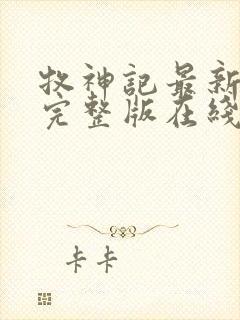 牧神記最新
完整版在綫
卡卡